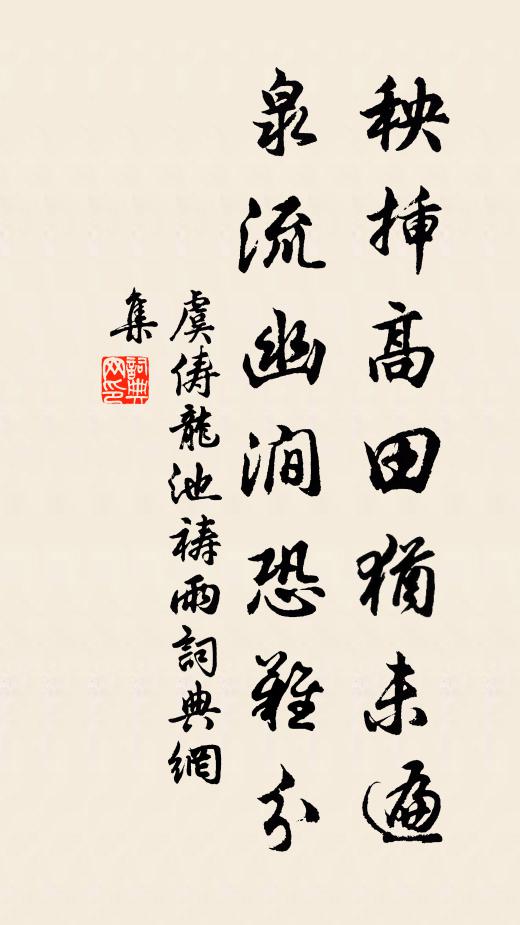 秧挿高田猶未遍
泉流幽澗恐難分
虞儔龍池禱雨詞典網
集
詞典網印